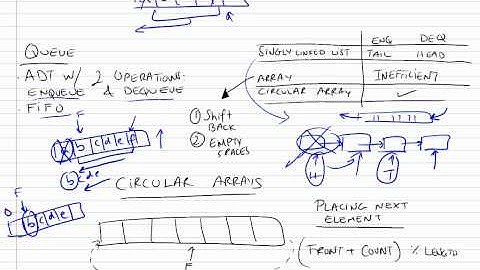 a
QUEUE
ADT W/ 2 OPERATIONS:
ENQUEUE & DEQUEUE
FIFO
F
b c d e f
b c d e
ENQ DEQ
SINGLY LINKED LIST TAIL HEAD
ARRAY INEFFICIENT
CIRCULAR ARRAY ✓
① Shift BACK
② EMPTY SPACES
H T
F
0 b c d e
CIRCULAR ARRAYS
F
PLACING NEXT
ELEMENT
(FRONT + COUNT) % LENGTH